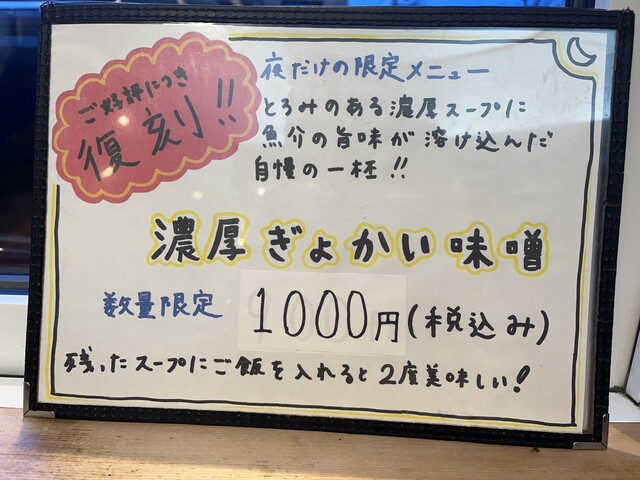 ご好評につき
復刻!!
夜だけの限定メニュー
とろみのある濃厚スープに
魚介の旨味が溶け込んだ
自慢の一杯!!
濃厚ぎょかい味噌
数量限定
1000円(税込み)
残ったスープにご飯を入れると2度美味しい!